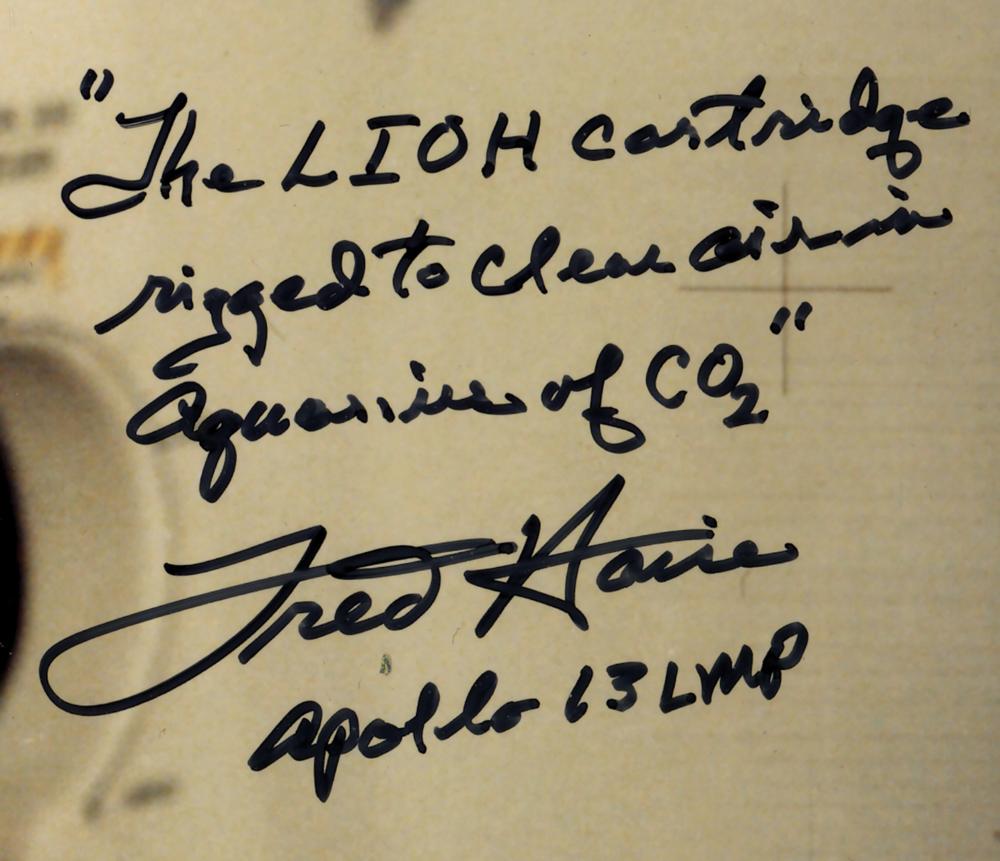 "The LIOH cartridge
rigged to clear air in
Aquarius of CO₂"
Fred Haise
Apollo 13 LMP